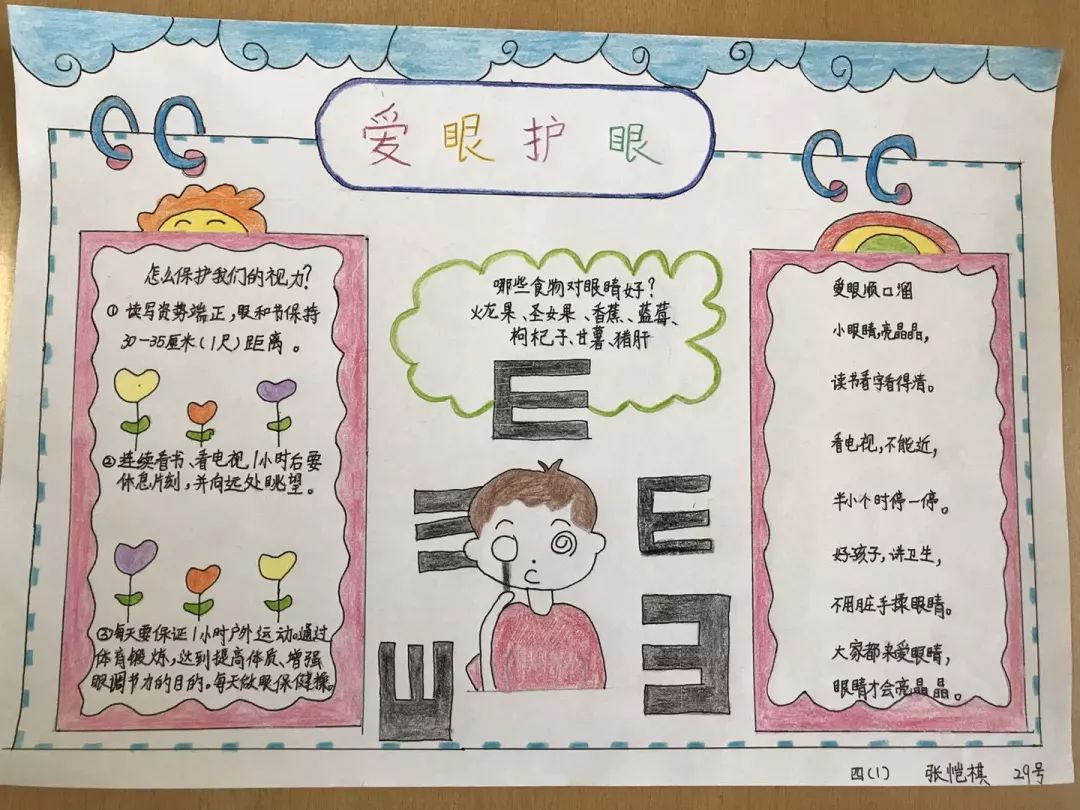 爱眼护眼
怎么保护我们的视力?
① 读写资势端正,眼和书保持
30-35厘米(1尺)距离。
②连续看书、看电视1小时后要
休息片刻,并向远处眺望。
③每天要保证1小时户外运动。通过
体育锻炼,达到提高体质、增强
眼调节力的目的。每天做眼保健操。
哪些食物对眼睛好?
火龙果、圣女果、香蕉、蓝莓、
枸杞子、甘薯、猪肝
E
E
爱眼顺口溜
小眼睛,亮晶晶,
读书看字看得清。
看电视,不能近,
半小个时停一停。
好孩子,讲卫生,
不用脏手揉眼睛。
大家都来爱眼睛,
眼睛才会亮晶晶。
四(1) 张恺棋 29号